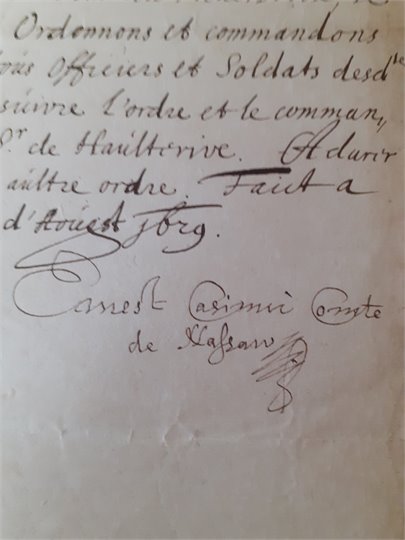 Ordonnons et commandons
tous Officiers et Soldats desdte
suivre l'ordre et le comman,,
Sr. de Haulterive. A durer
aultre ordre. Faict a
d'Aouest 1629.
Ernest Casimir Comte
de Nassau